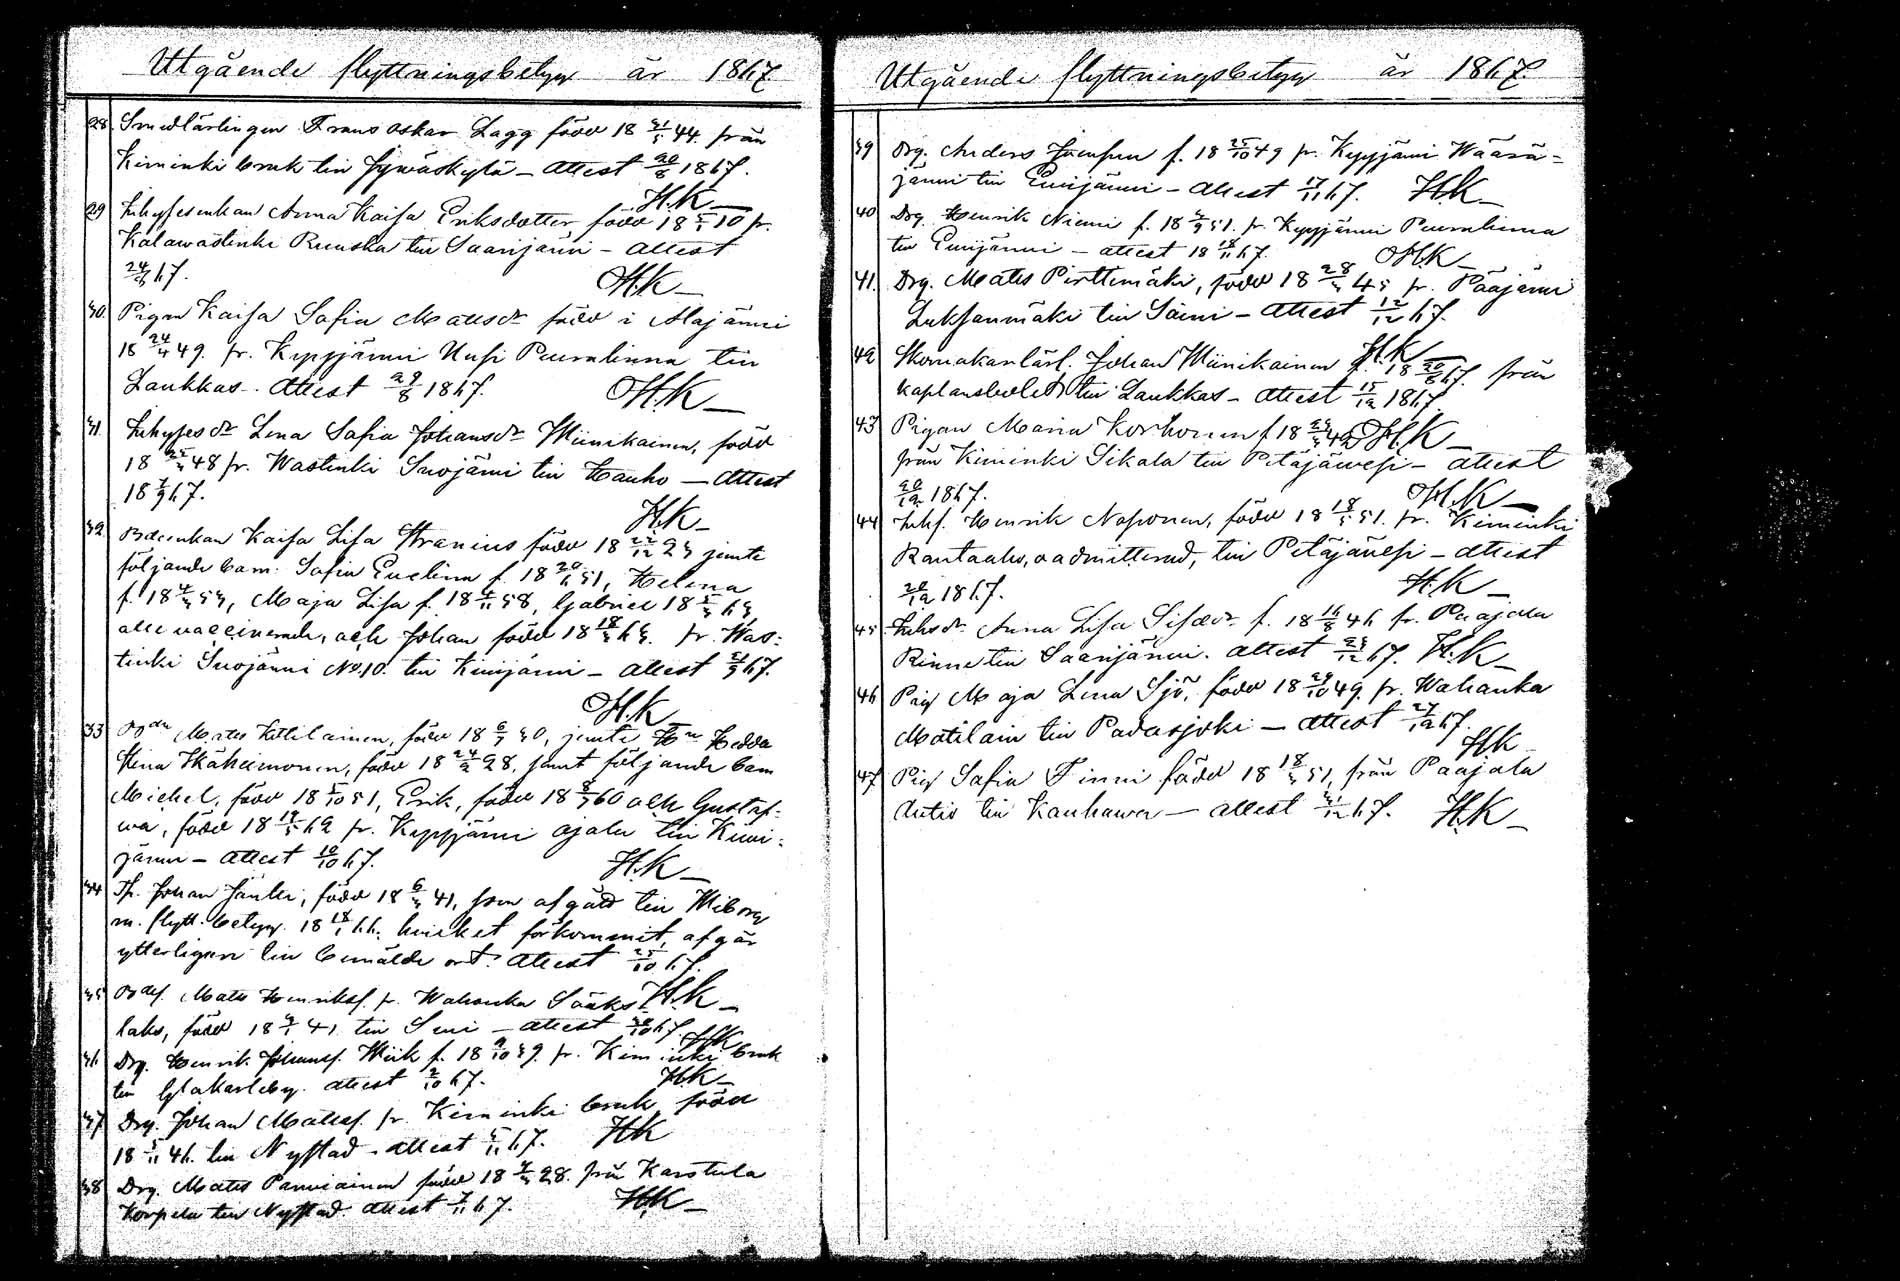 Utgående flyttningsbetyg år 1867
28. Smedlärlingen Frans Oskar Lagg född 18 31/1 44. från
Kiminki bruk till Jywäskylä – attest 20/8 1867.
H.K
29 Inhysesenkan Anna Kaisa Eriksdotter, född 18 5/1 10 fr.
Kalawastinki Ruuska till Saarijärvi – attest
24/8 67.
H.K
30. Pigan Kaisa Sofia Mattsdr född i Alajärvi
18 24/4 49. fr. Kyyjärvi Uusi Puuralinna till
Laukkas. Attest 29/8 1867.
H.K
31. Inhysesdr Lena Sofia Johansdr Minikainen, född
18 25/3 48 fr. Wastinki Suojärvi till Hauho – Attest
18 7/9 67.
H.K
32. Bdeenkan Kaisa Lisa Stranius född 18 22/12 23 jemte
följande barn: Sofia Evelina f. 18 20/6 51, Helena
f. 18 4/3 53, Maja Lisa f. 18 4/11 58, Gabriel 18 5/3 63,
alle vaccinerade, och Johan född 18 18/3 63. fr. Was-
tinki Suojärvi No 10. till Kivijärvi – attest 21/9 67.
H.K
33 Bdn Matts Kettilainen, född 18 6/7 30, jemte Hu Hedda
Stina Kähimonen, född 18 24/2 28, samt följande barn
Michel, född 18 5/10 51, Erik, född 18 8/7 60 och Gustaf-
wa, född 18 19/5 62 fr. Kyyjärvi till Kiwi-
järvi – attest 10/10 67.
H.K
34 Th. Johan Jäntti, född 18 6/3 41, som afgått till Wiborg
m. flytt. betyg. 18 18/1 66. hvilket förkommit, afgår
ytterligare till bemälde ort. Attest 25/10 67.
H.K
35 Bdes. Matts Henriksf. fr. Wahanka Sääks-
laks, född 18 3/1 41 till Seni – attest 30/10 67.
H.K
36. Drg. Henrik Johansf. Wiik f. 18 9/10 39. fr. Kiminki bruk
till Glakarleby. attest 2/10 67.
H.K
37 Drg. Johan Mattsf. fr. Kiminki bruk, född
18 5/11 46. till Nystad – attest 5/11 67.
H.K
38 Drg. Matts Panviainen född 18 4/3 28. från Karstula
Korpela till Nystad. attest 7/11 67.
H.K
Utgående flyttningsbetyg år 1867
39 Drg. Anders f. 18 25/10 49 fr. Kyyjärvi Wäärä-
järvi till Evijärvi – attest 17/11 67.
H.K
40 Drg. Henrik Niemi f. 18 4/9 51. fr. Kyyjärvi Puuralinna
till Evijärvi – attest 18 18/11 67.
H.K
41. Drg. Matts Pirttimäki, född 18 28/3 45 fr. Pääjärvi
Luksanmäki till Säini – attest 12/12 67.
H.K
42 Skomakarlärl. Johan Minikainen f. 18 20/8 67. från
Kaplansbolet till Laukkas – attest 15/12 1867
H.K
43 Pigan Maria Korhonen f 18 23/3 42
från Kiminki Sikala till Petäjäwesi – attest
20/12 1867.
H.K
44 Inhs. Henrik Naponen, född 18 18/5 51. fr. Kiminki
Rantaaho, oadmitterad, till Petäjävesi – attest
20/12 1867.
H.K
45 Inhsdr Anna Lisa f. 18 16/8 46 fr. Pääjala
Rinne till Saarijärvi. attest 23/12 67.
H.K
46 Pig Maja Lena Sjö, född 18 29/10 49. fr. Wahanka
Mätilain till Padasjoki – attest 27/12 67.
H.K
47 Pig Sofia Finni född 18 18/3 51, från Pääjala
Autio till Kauhawa – attest 31/12 67.
H.K